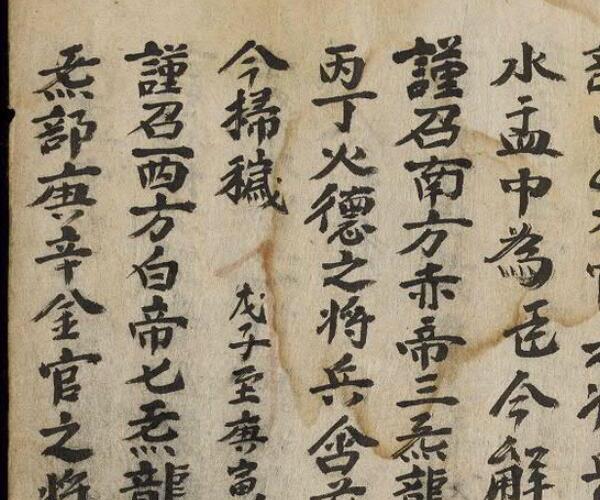 水盂中為今解
謹召南方赤帝三炁龍
丙丁火德之将兵
今掃穢 戊子至庚寅
謹召西方白帝七炁龍
炁部庚辛金官之将